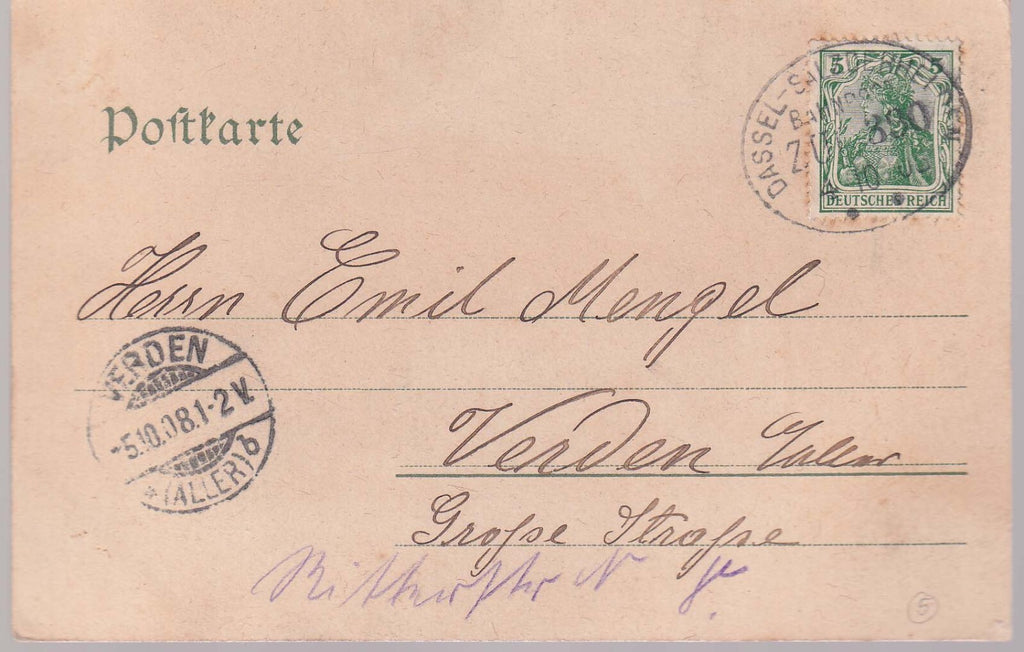 Postkarte
5 5
DEUTSCHES REICH
DASSEL-
ZUG 880
10
Herrn Emil Mengel
VERDEN
-5.10.08.1-2 V.
* (ALLER) b
Verden
Große Straße
Ritterstr N
5